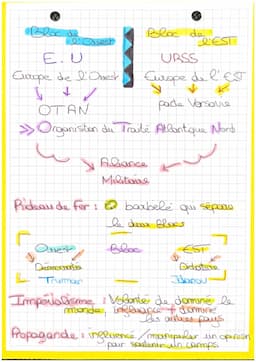 Bloc de l'Ouest
Bloc de l'EST
E.U
URSS
Europe de l'Ouest
Europe de l'EST
OTAN
pacte Varsovie
>> Organisation du Traité Atlantique Nord
Alliance
Militaire
Rideau de Fer : barbelé qui sépare
le deux Blocs
Ouest Bloc EST
Démocratie Dictature
Truman Jdanov
Impérialisme : Volonté de dominé le
monde, influence + dominé
les autres pays
Propagande : influencé / manipuler un opinion
pour soutenir un camps.